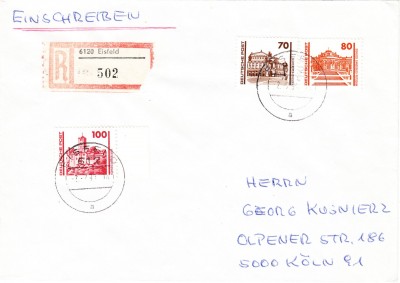 EINSCHREIBEN
6120 Eisfeld
R
502
70
DEUTSCHE POST
80
DEUTSCHE POST
100
DEUTSCHE POST
a
a
HERRN
GEORG KUSNIERZ
OLPENER STR. 186
5000 KÖLN 91